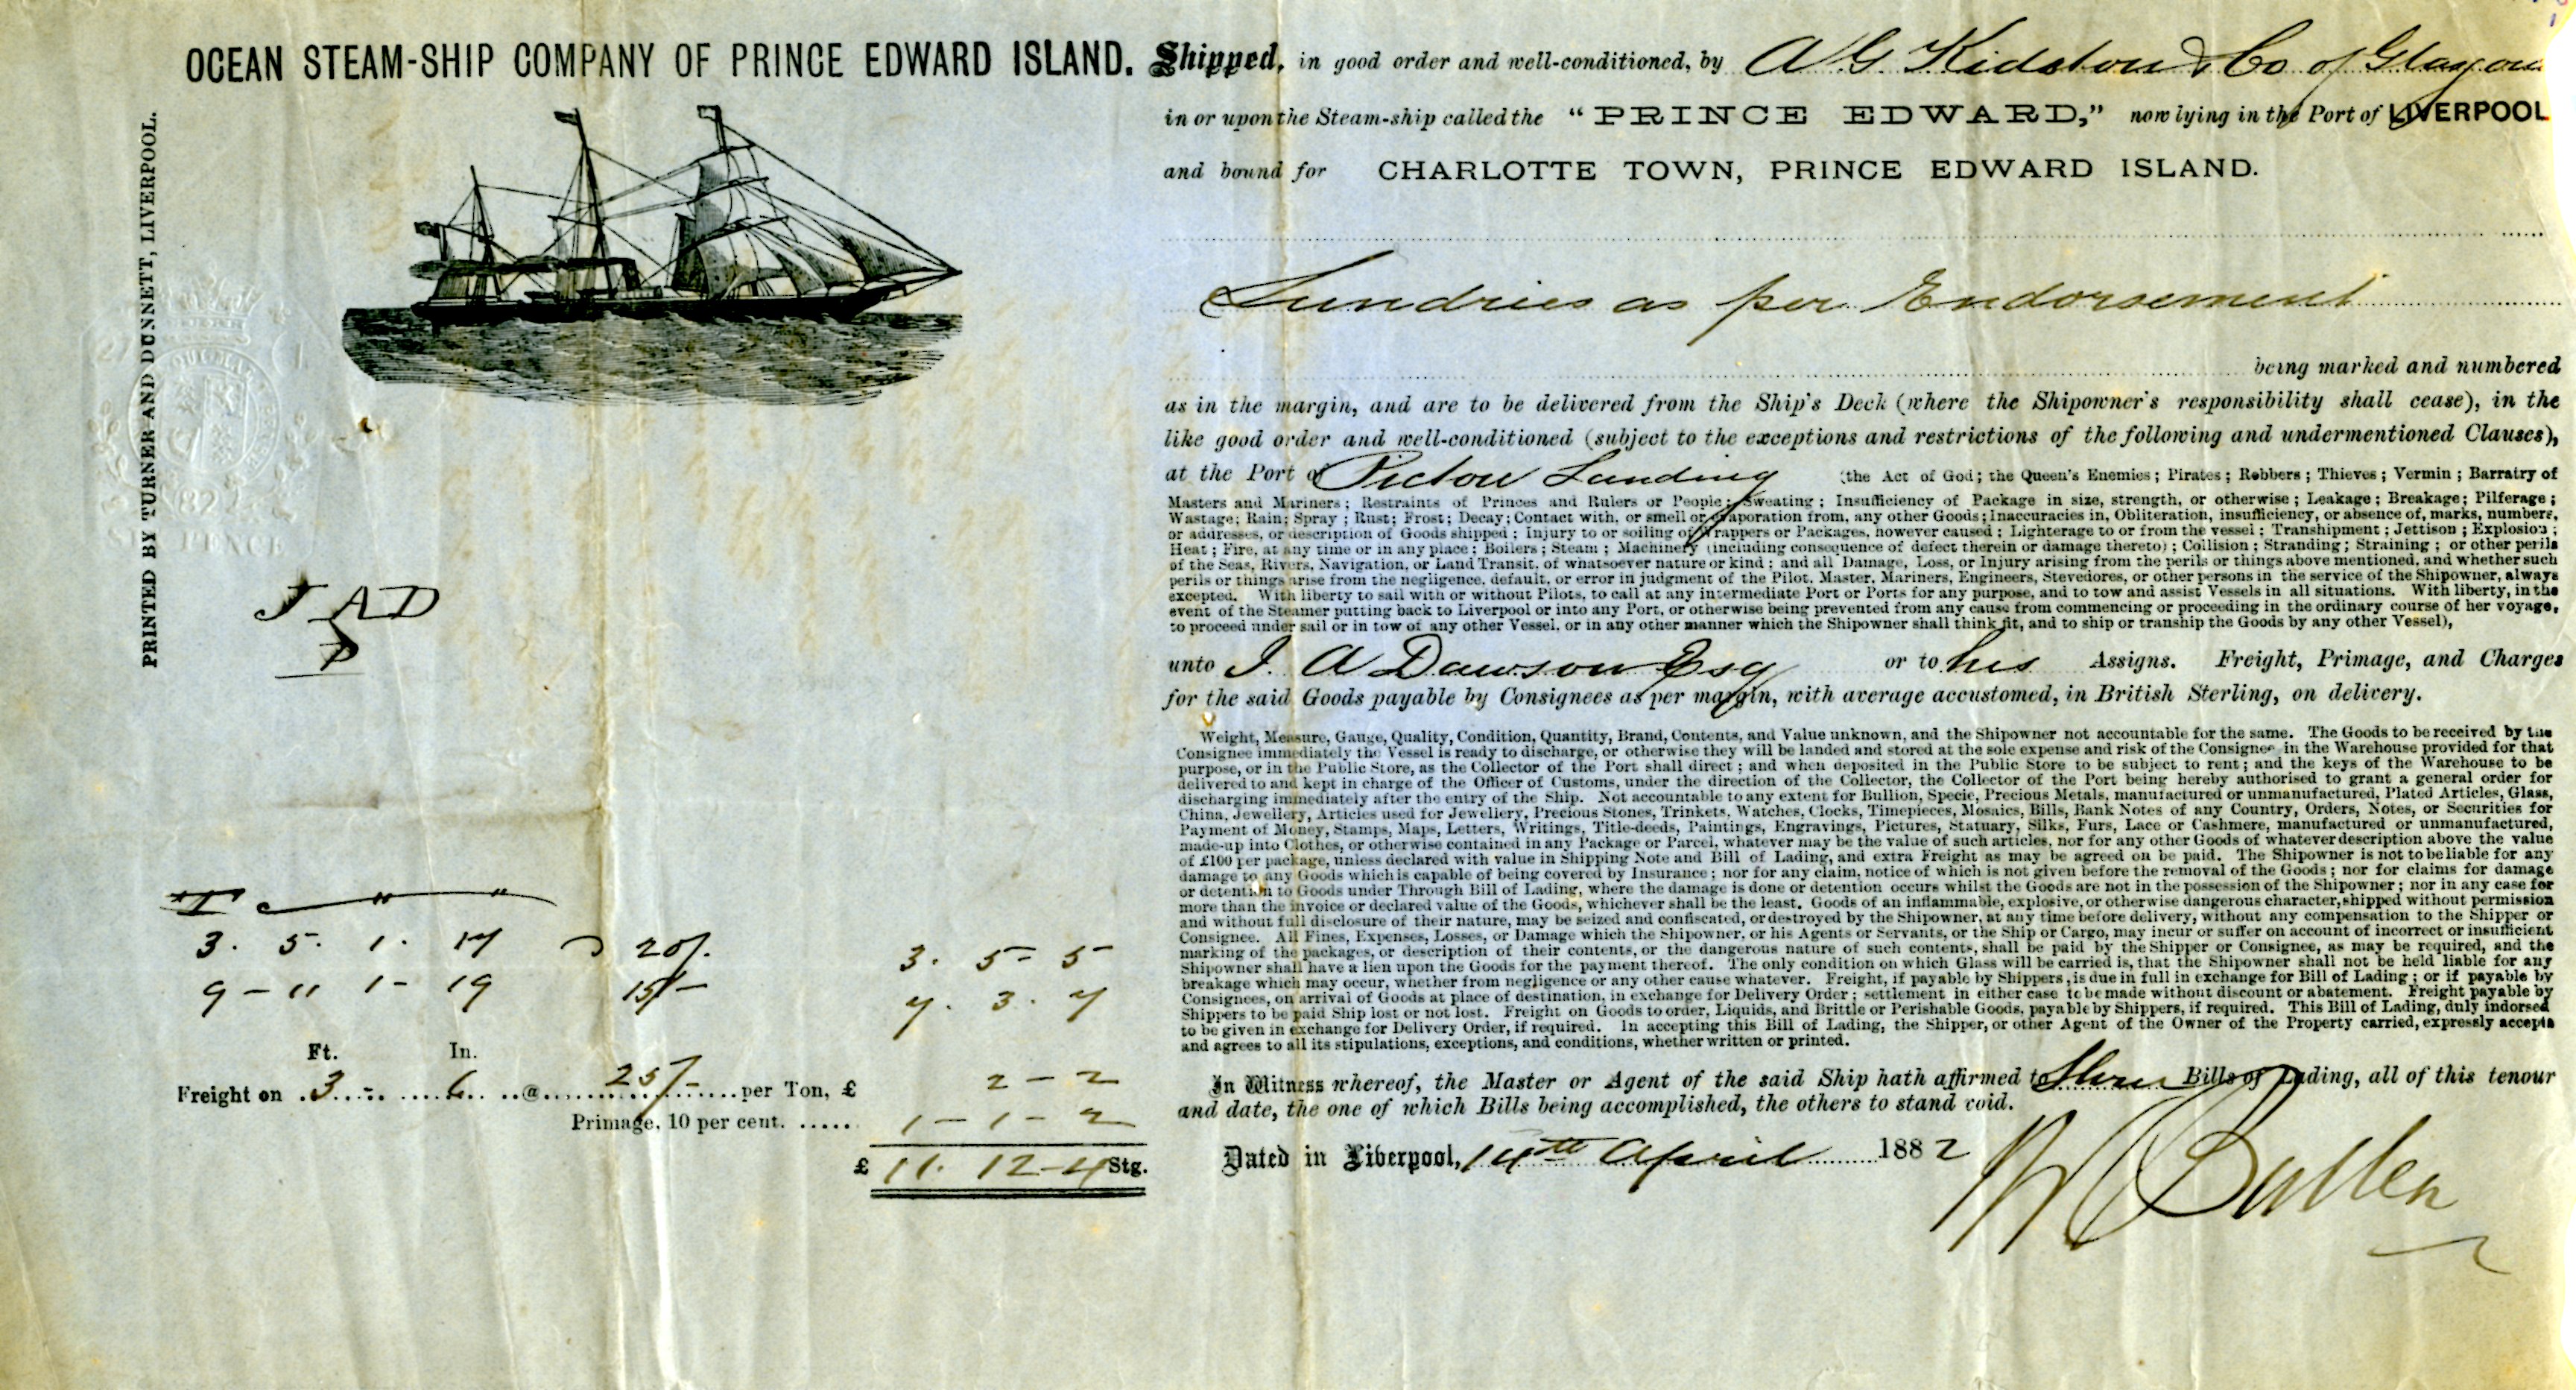 OCEAN STEAM-SHIP COMPANY OF PRINCE EDWARD ISLAND.
PRINTED BY TURNER AND DUNNETT, LIVERPOOL.
SIX PENCE
J A D
P
T C " "
3. 5. 1. 17 @ 20/.
3. 5 - 5
9 - 11 1 - 19 15/-
7. 3. 7
Ft. In.
Freight on 3 - 6 @ 25/- per Ton, £ 2 - 2
Primage, 10 per cent. ..... 1 - 1 - 2
£ 11. 12 - 4 Stg.
Shipped, in good order and well-conditioned, by A. G. Kidston & Co of Glasgow
in or upon the Steam-ship called the "PRINCE EDWARD," now lying in the Port of LIVERPOOL
and bound for CHARLOTTE TOWN, PRINCE EDWARD ISLAND.
Sundries as per Endorsement
being marked and numbered
as in the margin, and are to be delivered from the Ship's Deck (where the Shipowner's responsibility shall cease), in the
like good order and well-conditioned (subject to the exceptions and restrictions of the following and undermentioned Clauses),
at the Port of Pictou Landing (the Act of God; the Queen's Enemies; Pirates; Robbers; Thieves; Vermin; Barratry of
Masters and Mariners; Restraints of Princes and Rulers or People; Sweating; Insufficiency of Package in size, strength, or otherwise; Leakage; Breakage; Pilferage;
Wastage; Rain; Spray; Rust; Frost; Decay; Contact with, or smell or evaporation from, any other Goods; Inaccuracies in, Obliteration, insufficiency, or absence of, marks, numbers,
or addresses, or description of Goods shipped; Injury to or soiling of Wrappers or Packages, however caused; Lighterage to or from the vessel; Transhipment; Jettison; Explosion;
Heat; Fire, at any time or in any place; Boilers; Steam; Machinery (including consequence of defect therein or damage thereto); Collision; Stranding; Straining; or other perils
of the Seas, Rivers, Navigation, or Land Transit, of whatsoever nature or kind; and all Damage, Loss, or Injury arising from the perils or things above mentioned, and whether such
perils or things arise from the negligence, default, or error in judgment of the Pilot, Master, Mariners, Engineers, Stevedores, or other persons in the service of the Shipowner, always
excepted. With liberty to sail with or without Pilots, to call at any intermediate Port or Ports for any purpose, and to tow and assist Vessels in all situations. With liberty, in the
event of the Steamer putting back to Liverpool or into any Port, or otherwise being prevented from any cause from commencing or proceeding in the ordinary course of her voyage,
to proceed under sail or in tow of any other Vessel, or in any other manner which the Shipowner shall think fit, and to ship or tranship the Goods by any other Vessel),
unto J. A Dawson Esq or to his Assigns. Freight, Primage, and Charges
for the said Goods payable by Consignees as per margin, with average accustomed, in British Sterling, on delivery.
Weight, Measure, Gauge, Quality, Condition, Quantity, Brand, Contents, and Value unknown, and the Shipowner not accountable for the same. The Goods to be received by the
Consignee immediately the Vessel is ready to discharge, or otherwise they will be landed and stored at the sole expense and risk of the Consignee in the Warehouse provided for that
purpose, or in the Public Store, as the Collector of the Port shall direct; and when deposited in the Public Store to be subject to rent; and the keys of the Warehouse to be
delivered to and kept in charge of the Officer of Customs, under the direction of the Collector, the Collector of the Port being hereby authorised to grant a general order for
discharging immediately after the entry of the Ship. Not accountable to any extent for Bullion, Specie, Precious Metals, manufactured or unmanufactured, Plated Articles, Glass,
China, Jewellery, Articles used for Jewellery, Precious Stones, Trinkets, Watches, Clocks, Timepieces, Mosaics, Bills, Bank Notes of any Country, Orders, Notes, or Securities for
Payment of Money, Stamps, Maps, Letters, Writings, Title-deeds, Paintings, Engravings, Pictures, Statuary, Silks, Furs, Lace or Cashmere, manufactured or unmanufactured,
made-up into Clothes, or otherwise contained in any Package or Parcel, whatever may be the value of such articles, nor for any other Goods of whatever description above the value
of £100 per package, unless declared with value in Shipping Note and Bill of Lading, and extra Freight as may be agreed on be paid. The Shipowner is not to be liable for any
damage to any Goods which is capable of being covered by Insurance; nor for any claim, notice of which is not given before the removal of the Goods; nor for claims for damage
or detention to Goods under Through Bill of Lading, where the damage is done or detention occurs whilst the Goods are not in the possession of the Shipowner; nor in any case for
more than the invoice or declared value of the Goods, whichever shall be the least. Goods of an inflammable, explosive, or otherwise dangerous character, shipped without permission
and without full disclosure of their nature, may be seized and confiscated, or destroyed by the Shipowner, at any time before delivery, without any compensation to the Shipper or
Consignee. All Fines, Expenses, Losses, or Damage which the Shipowner, or his Agents or Servants, or the Ship or Cargo, may incur or suffer on account of incorrect or insufficient
marking of the packages, or description of their contents, or the dangerous nature of such contents, shall be paid by the Shipper or Consignee, as may be required, and the
Shipowner shall have a lien upon the Goods for the payment thereof. The only condition on which Glass will be carried is, that the Shipowner shall not be held liable for any
breakage which may occur, whether from negligence or any other cause whatever. Freight, if payable by Shippers, is due in full in exchange for Bill of Lading; or if payable by
Consignees, on arrival of Goods at place of destination, in exchange for Delivery Order; settlement in either case to be made without discount or abatement. Freight payable by
Shippers to be paid Ship lost or not lost. Freight on Goods to order, Liquids, and Brittle or Perishable Goods, payable by Shippers, if required. This Bill of Lading, duly indorsed
to be given in exchange for Delivery Order, if required. In accepting this Bill of Lading, the Shipper, or other Agent of the Owner of the Property carried, expressly accepts
and agrees to all its stipulations, exceptions, and conditions, whether written or printed.
In Witness whereof, the Master or Agent of the said Ship hath affirmed to Three Bills of Lading, all of this tenour
and date, the one of which Bills being accomplished, the others to stand void.
Dated in Liverpool, 14th April 1882